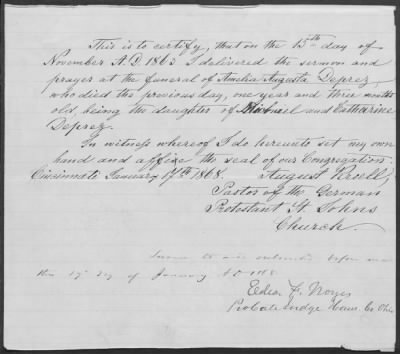 This is to certify, that on the 15th day of
November A.D. 1863 I delivered the sermon and
prayer at the funeral of Amelia Augusta Deprez,
who died the previous day, one year and three months
old, being the daughter of Michael and Catharine
Deprez.
In witness whereof I do hereunto set my own
hand and affixe the seal of our Congregation.
Cincinnati January 17th 1868. August Kroell,
Pastor of the German
Protestant St. Johns
Church.
Sworn to and subscribed before me
this 17 day of January AD 1868
F. Noyes
Probate Judge Ham. Co. Ohio